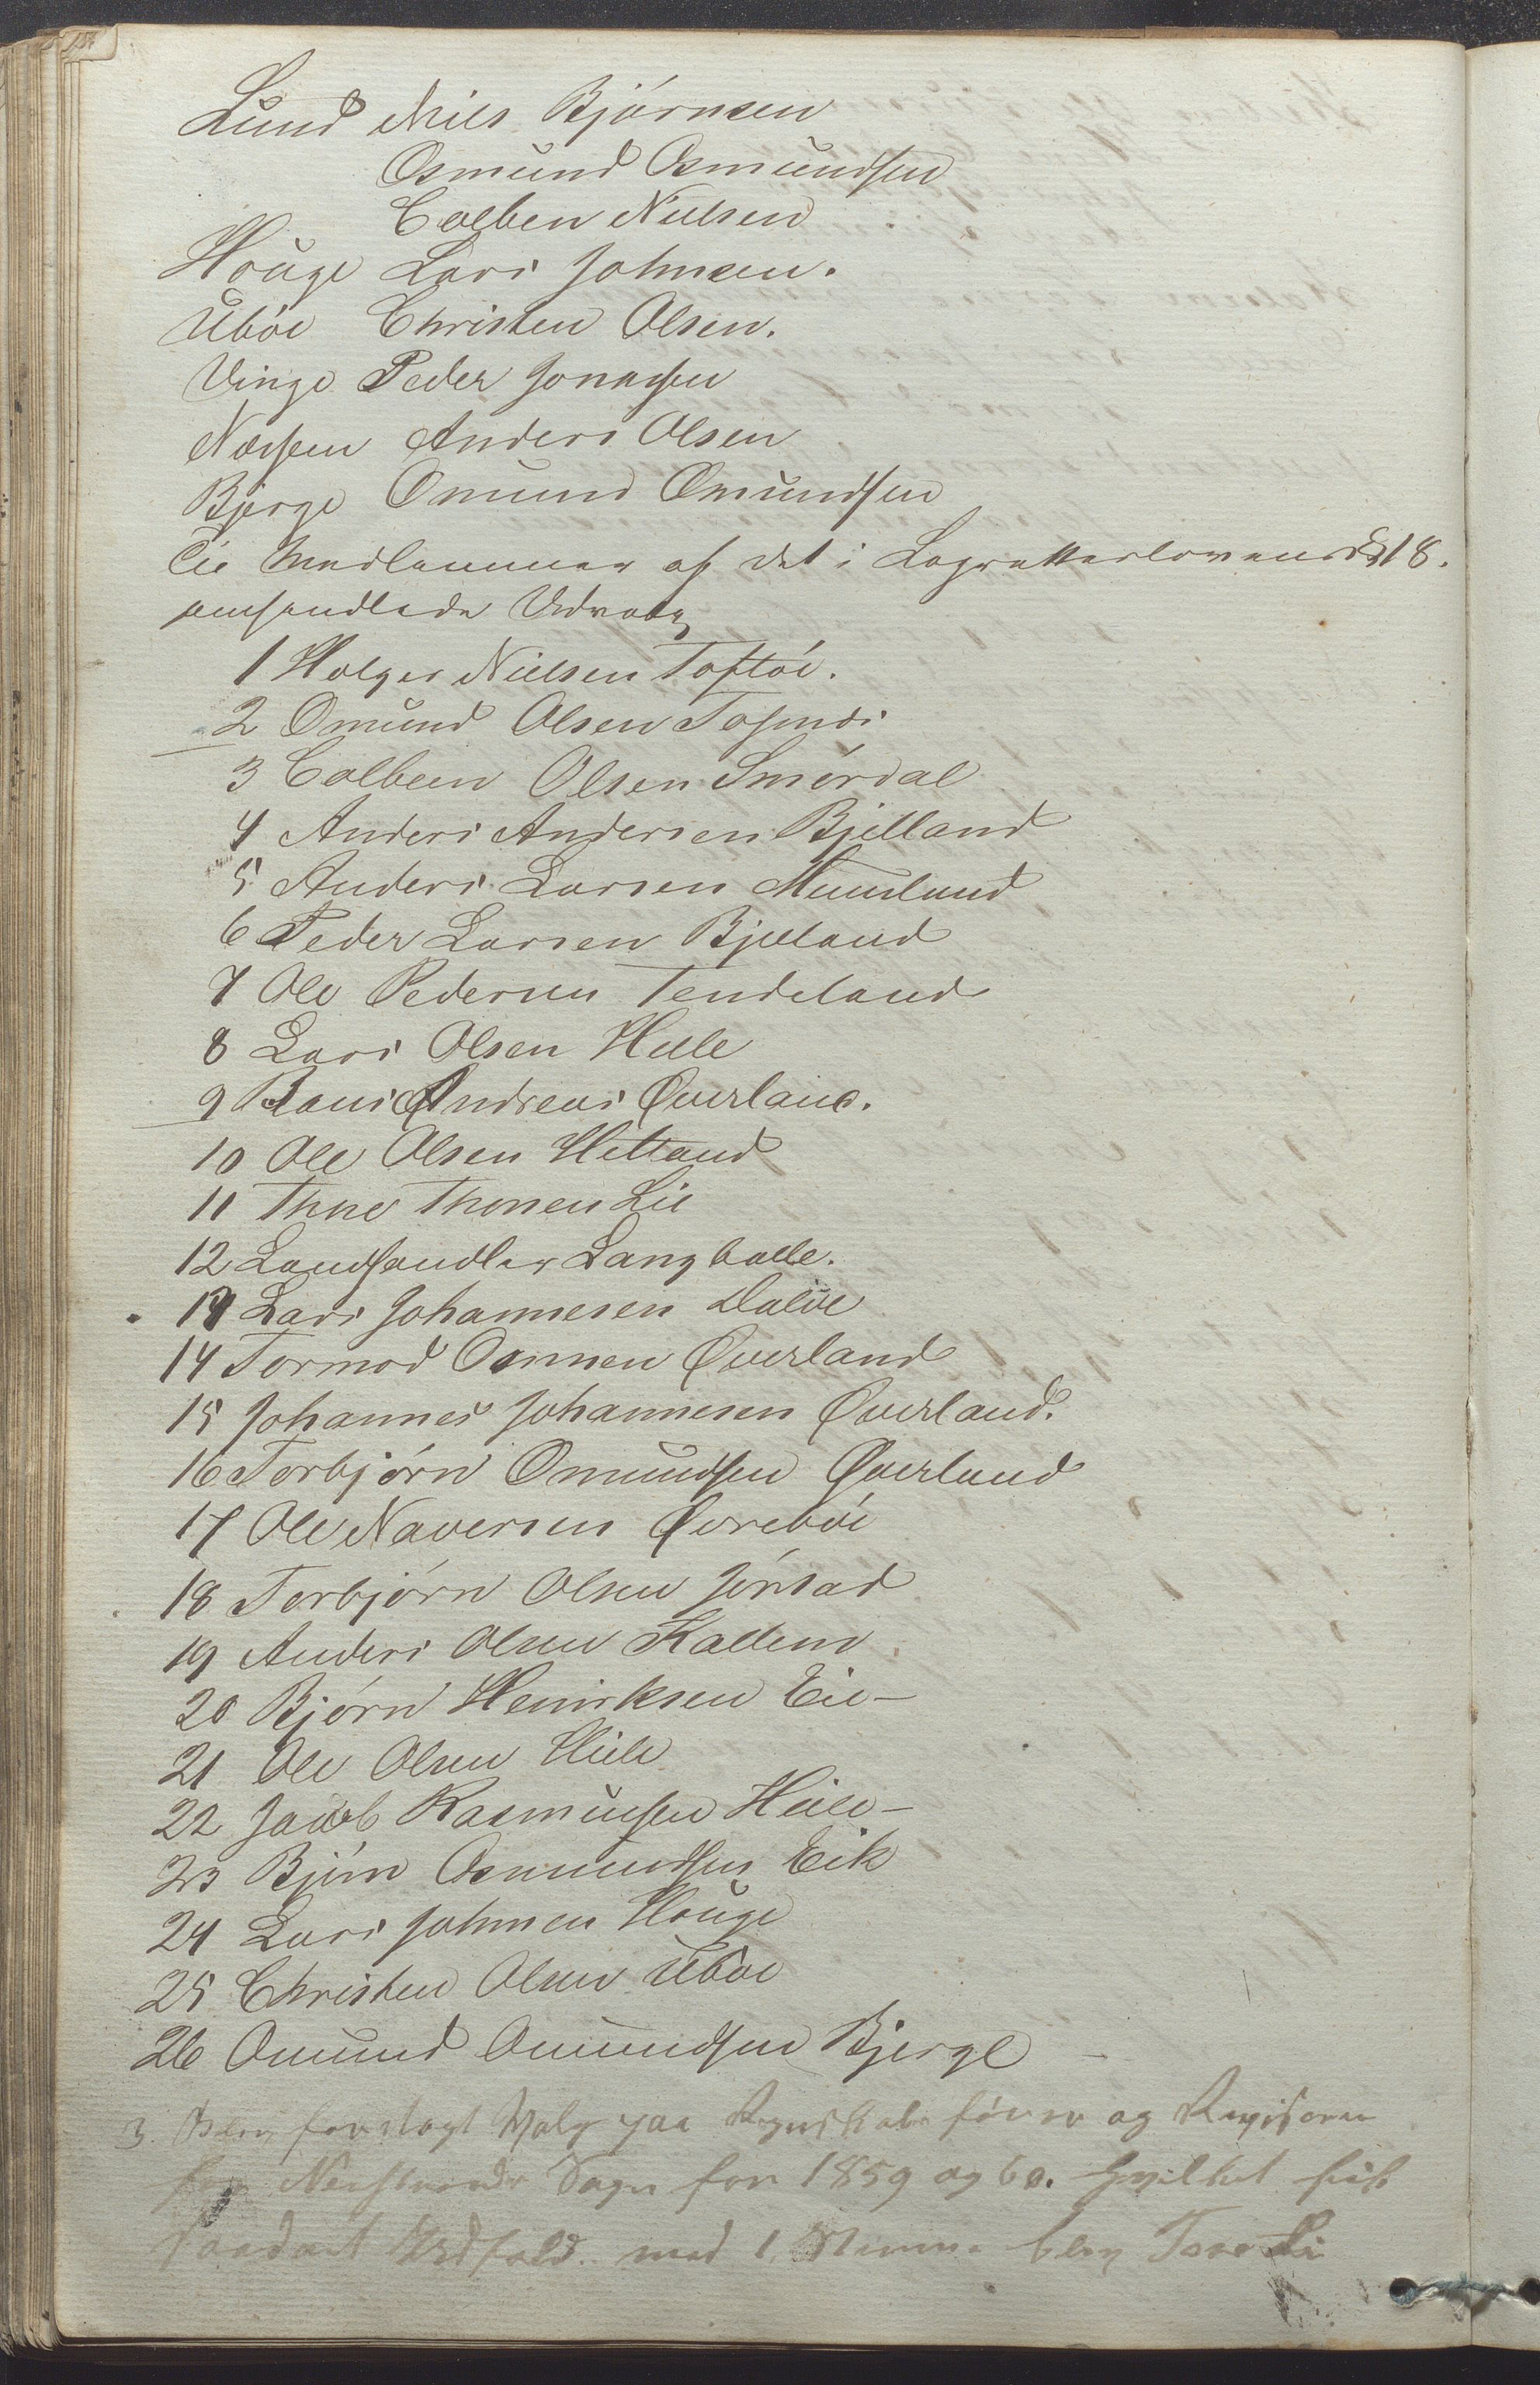 Lund Niels Bjørnsen
Osmund Osmundsen
Colben Nielsen
Houge Lars Johnsen.
Ubøe Christen Olsen.
Vinge Peder Jonassen
Næssen Anders Olsen
Bjerge Omund Omundsen
Til Medlemmer af det i Lagrettesloven §18.
omhandlede Udvalg
1 Holger Nielsen Toftøe.
2 Omund Olsen
3 Colbeen Olsen Smørdal
4 Anders Andersen Bjelland
5 Anders Larsen
6 Peder Larsen Bjelland
7 Ole Pedersen Tendeland
8 Lars Olsen Helle
9 Andreas Øverland.
10 Ole Olsen Hetland
11 Thore Thorsen Lie
12 Landhandler Langballe.
13 Lars Johannesen Dalve
14 Tormod Osmen Øverland
15 Johannes Johannesen Øverland.
16 Torbjørn Omundsen Øverland
17 Ole Naversen Øvrebøe
18 Torbjørn Olsen Jørstad
19 Anders Olsen Kallem
20 Bjørn Henriksen Eie-
21 Ole Olsen Hiele
22 Jacob Rasmussen Heile-
23 Bjørn Osmundsen Eik
24 Lars Johnsen Houge
25 Christen Olsen Ubøe
26 Omund Omundsen Bjerge
3. Blev foretagt Valg paa Regnskabsfører og Revisorer
for Nerstrands Sogn for 1859 og 60. hvilket fik
saadant Udfald. med 1 Stemme blev Tore Li